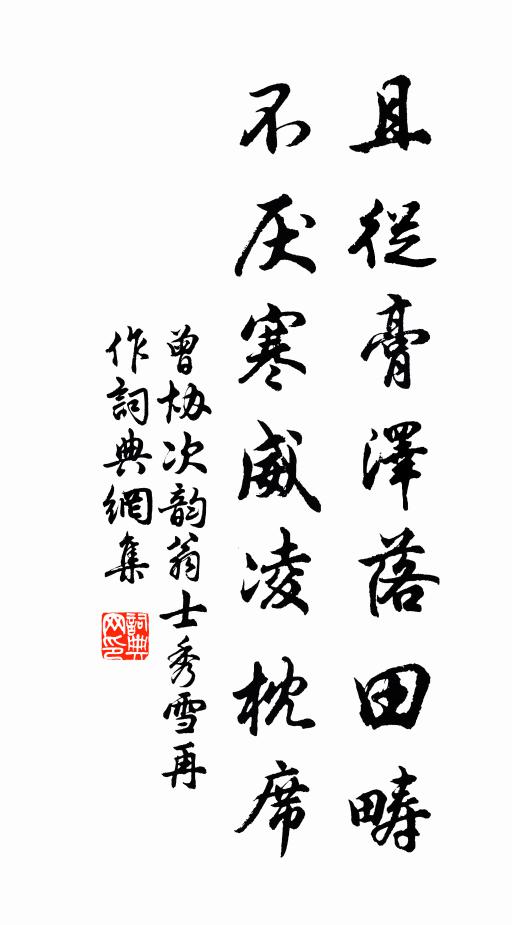 且從膏澤落田疇
不厌寒威凌枕席
曾协次韵翁士秀雪再
作詞典網集
詞典
网印